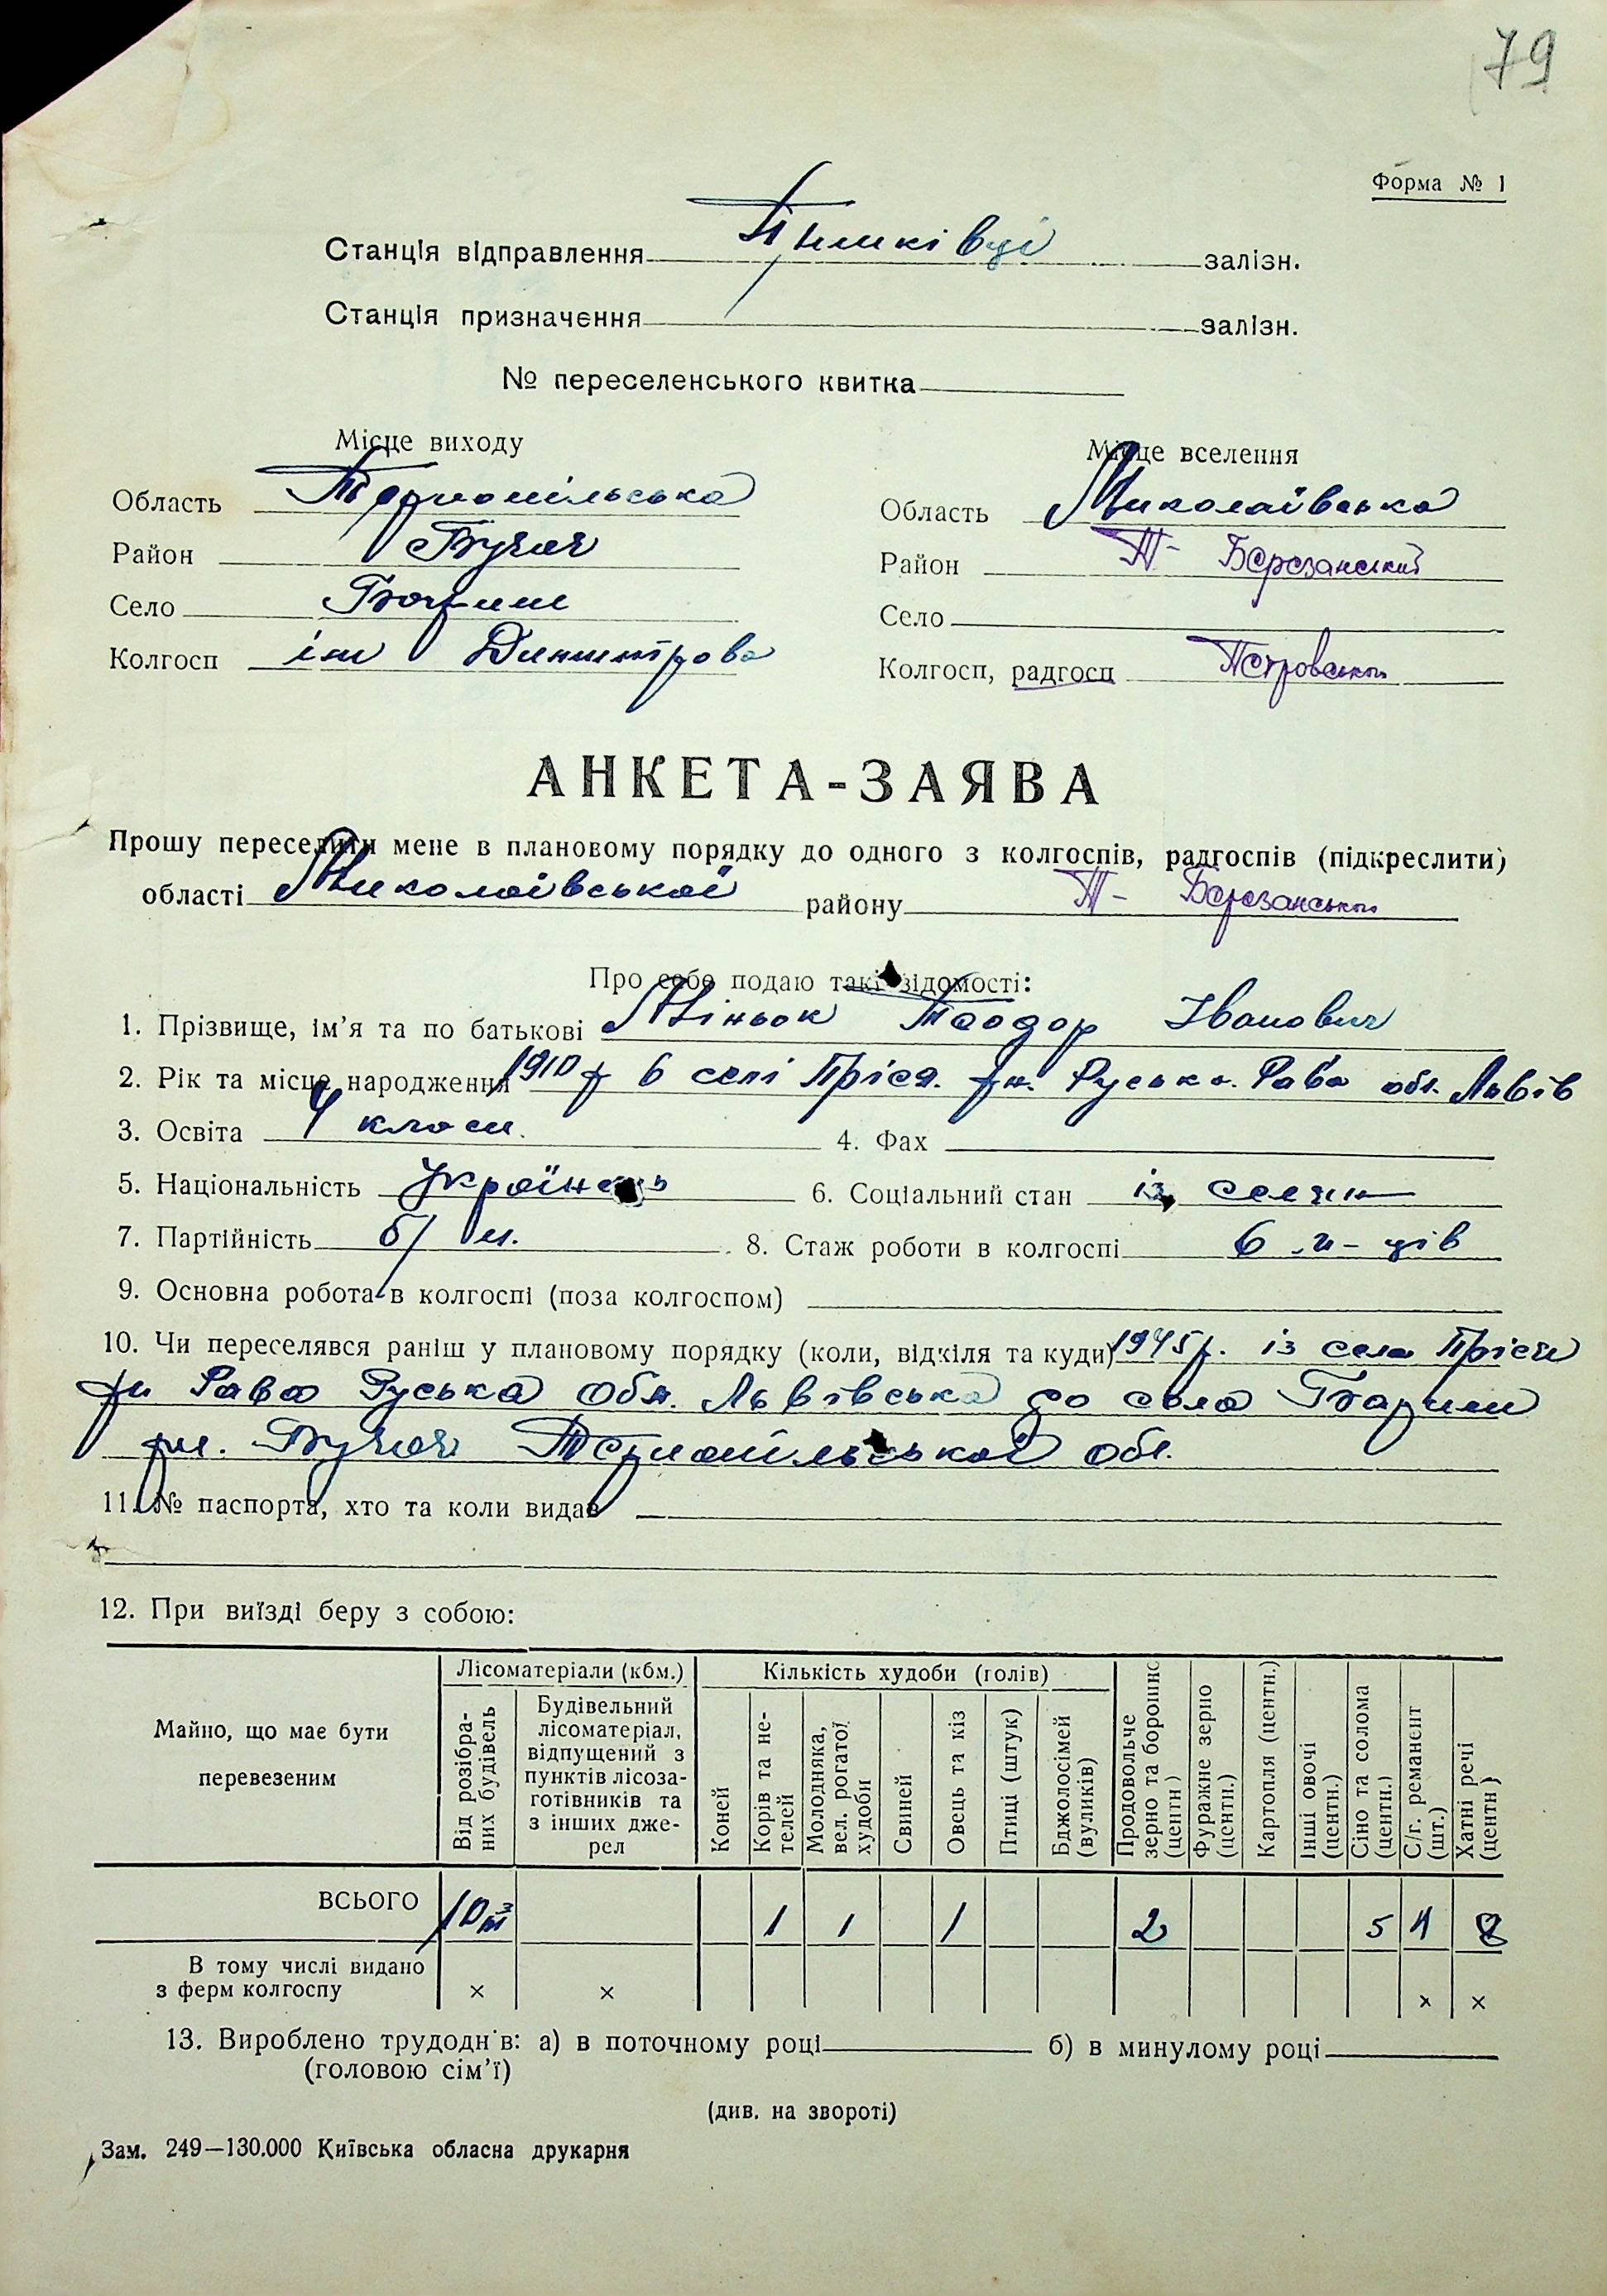 79
Форма № 1
Станція відправлення Пишківці залізн.
Станція призначення залізн.
№ переселенського квитка
Місце виходу
Місце вселення
Область Тернопільська
Область Миколаївська
Район Бучач
Район Т- Березанский
Село
Село
Колгосп ім Димитрова
Колгосп, радгосп Петровського
АНКЕТА-ЗАЯВА
Прошу переселити мене в плановому порядку до одного з колгоспів, радгоспів (підкреслити)
області Миколаївської району Т- Березанського
Про себе подаю такі відомості:
1. Прізвище, ім’я та по батькові Міньок Теодор Іванович
2. Рік та місце народження 1910 р в селі Пріся. рн. Руська. Рава обл. Львів
3. Освіта 4 класи. 4. Фах
5. Національність Українець 6. Соціальний стан із селян
7. Партійність б/п. 8. Стаж роботи в колгоспі 6 м-ців
9. Основна робота в колгоспі (поза колгоспом)
10. Чи переселявся раніш у плановому порядку (коли, відкіля та куди) 1945р. із села Прісн
рн Рава Руська обл. Львівська до села
рн. Бучач Тернопільської обл.
11. № паспорта, хто та коли видав
12. При виїзді беру з собою:
Майно, що має бути перевезеним
Лісоматеріали (кбм.)
Кількість худоби (голів)
Від розібраних будівель
Будівельний лісоматеріал, відпущений з пунктів лісозаготівників та з інших джерел
Коней
Корів та нетелей
Молодняка, вел. рогатої худоби
Свиней
Овець та кіз
Птиці (штук)
Бджолосімей (вуликів)
Продовольче зерно та борошно (центн)
Фуражне зерно (центн.)
Картопля (центн.)
Інші овочі (центн.)
Сіно та солома (центн.)
С/г. реманент (шт.)
Хатні речі (центн)
ВСЬОГО 10 м³ 1 1 1 2 5 4 8
В тому числі видано
з ферм колгоспу × × × ×
13. Вироблено трудоднів: а) в поточному році б) в минулому році
(головою сім’ї)
(див. на звороті)
Зам. 249—130.000 Київська обласна друкарня